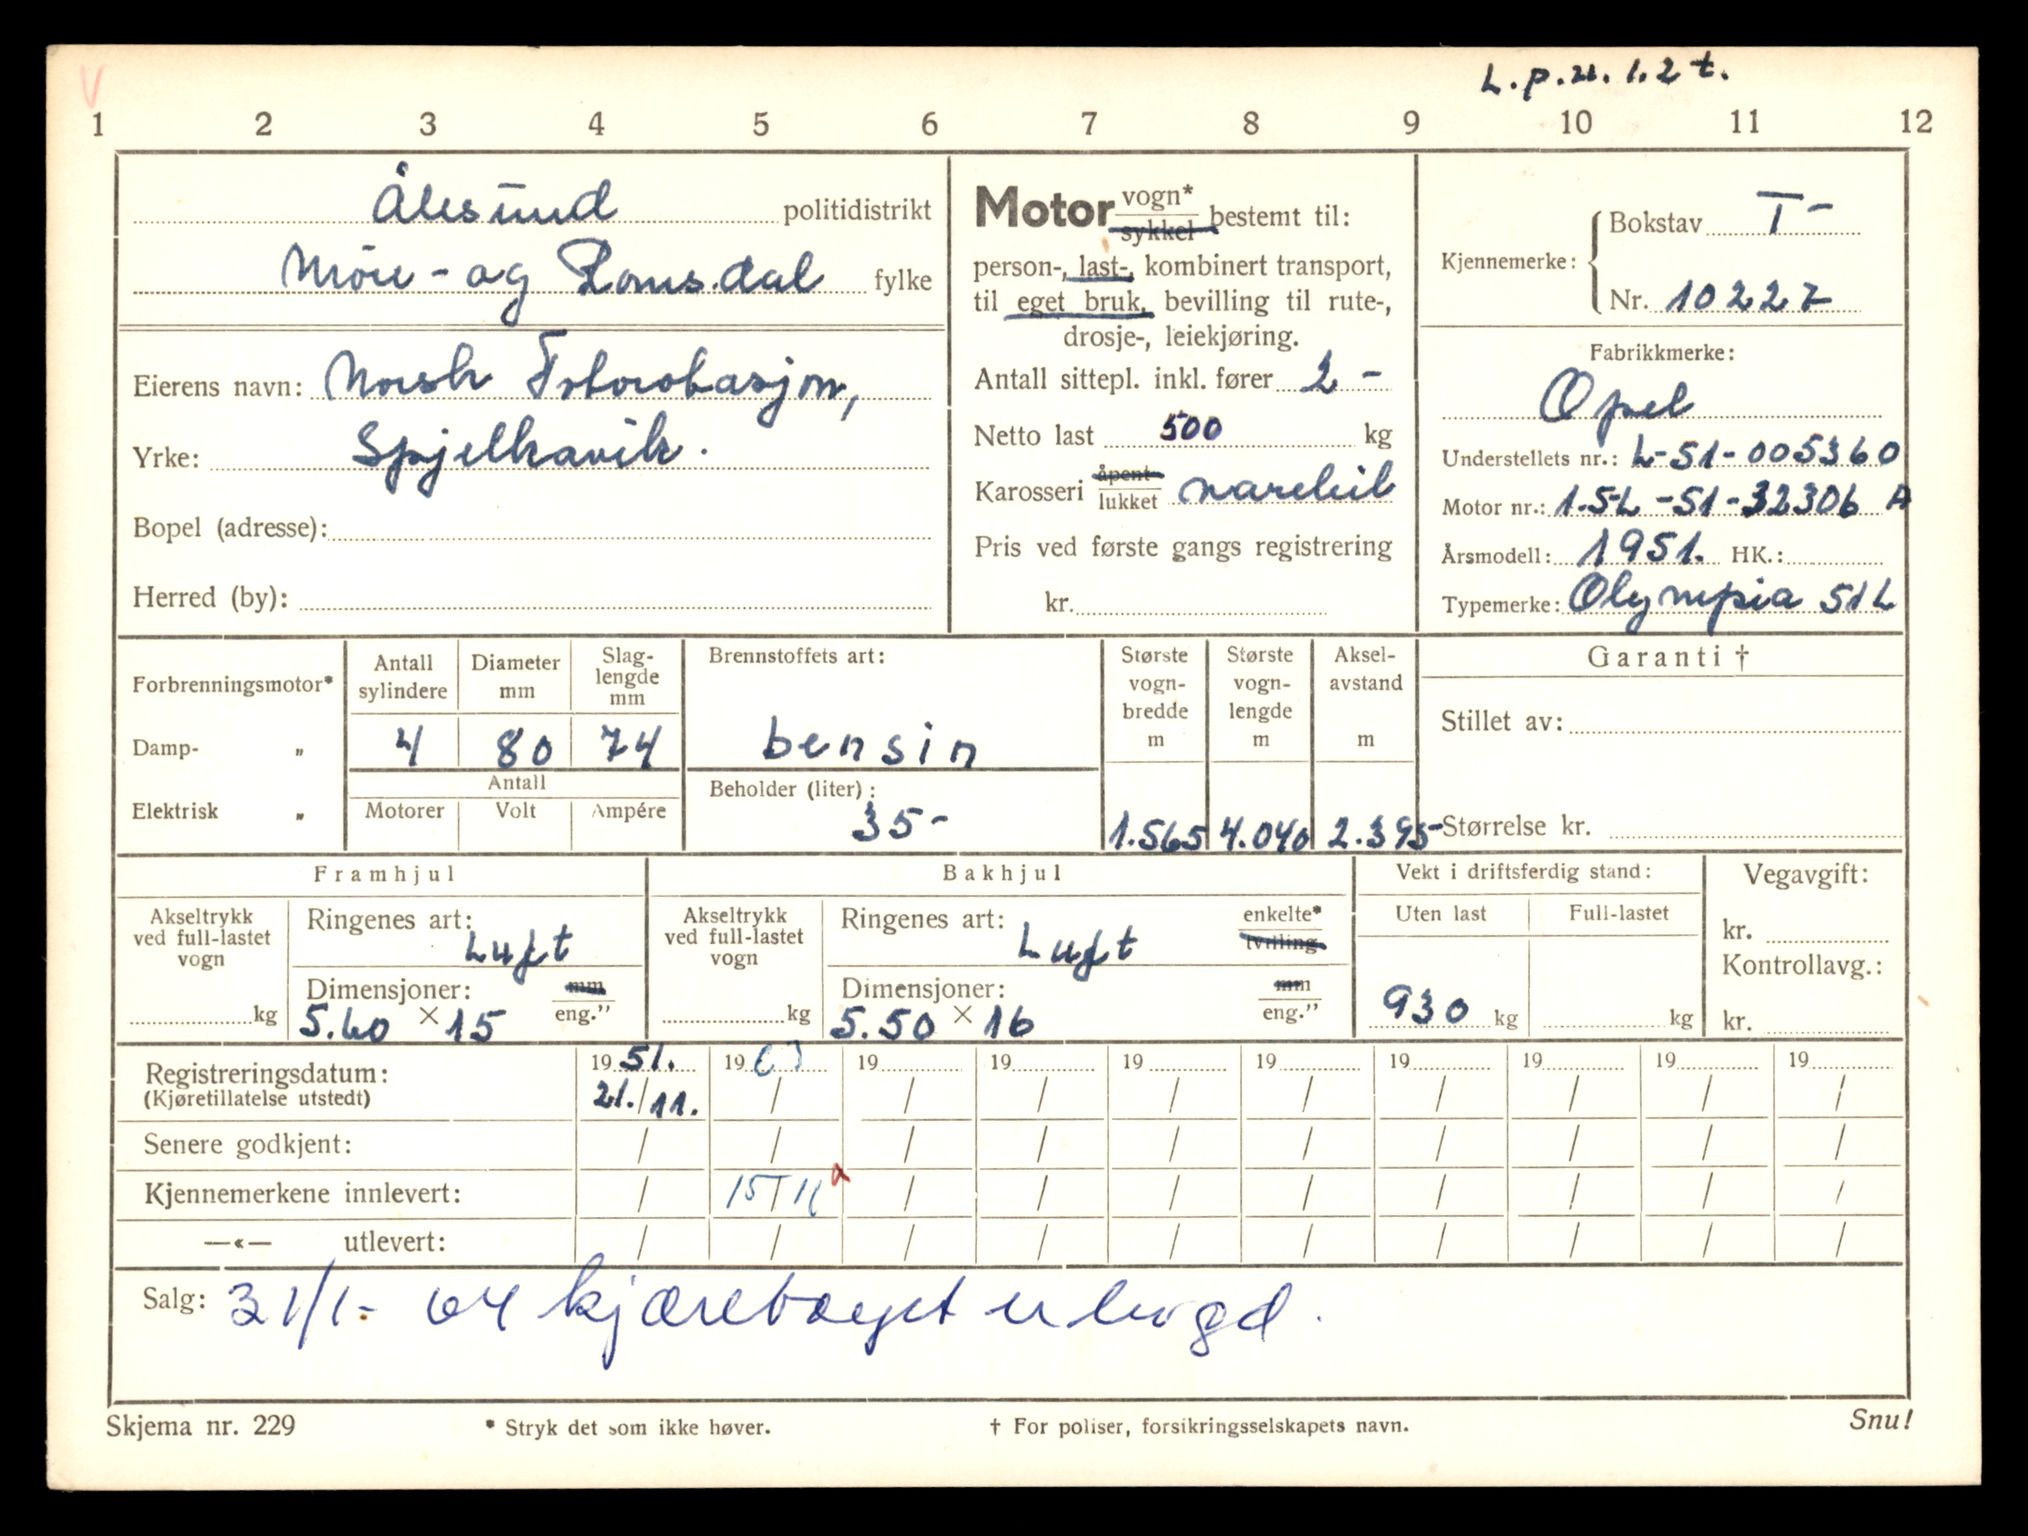 V
L.p.u. 1.2 t.
1 2 3 4 5 6 7 8 9 10 11 12
Ålesund politidistrikt
Möre - og Romsdal fylke
Eierens navn: Norsk
Yrke: Spjelkavik.
Bopel (adresse):
Herred (by):
Motor vogn* sykkel bestemt til:
person-, last-, kombinert transport,
til eget bruk, bevilling til rute-,
drosje-, leiekjøring.
Antall sittepl. inkl. fører 2 -
Netto last 500 kg
Karosseri åpent lukket varebil
Pris ved første gangs registrering
kr.
Kjennemerke: Bokstav T-
Nr. 10227
Fabrikkmerke:
Opel
Understellets nr.: L-51-005360
Motor nr.: 1.5L-51-32306 A
Årsmodell: 1951. HK.:
Typemerke: Olympia 51L
Forbrenningsmotor*
Damp- „
Elektrisk „
Antall sylindere
4
Diameter mm
80
Slag-
lengde
mm
74
Antall
Motorer Volt Ampére
Brennstoffets art:
bensin
Beholder (liter):
35-
Største
vogn-
bredde
m
1.565
Største
vogn-
lengde
m
4.040
Aksel-
avstand
m
2.395-
Garanti †
Stillet av:
Størrelse kr.
Framhjul
Akseltrykk
ved full-lastet
vogn
kg
Ringenes art:
Luft
Dimensjoner: mm
5.60 × 15 eng."
Bakhjul
Akseltrykk
ved full-lastet
vogn
kg
Ringenes art: enkelte*
Luft tvilling
Dimensjoner: mm
5.50 × 16 eng."
Vekt i driftsferdig stand:
Uten last Full-lastet
930 kg kg
Vegavgift:
kr.
Kontrollavg.:
kr.
Registreringsdatum: 19 51. 19 63 19 19 19 19 19 19 19 19
(Kjøretillatelse utstedt) 21./11. / / / / / / / / /
Senere godkjent: / / / / / / / / / /
Kjennemerkene innlevert: / 15/11 a / / / / / / / /
—«— utlevert: / / / / / / / / / /
Salg: 31/1- 64 kjøretøyet er hugd.
Skjema nr. 229 * Stryk det som ikke høver. † For poliser, forsikringsselskapets navn. Snu!